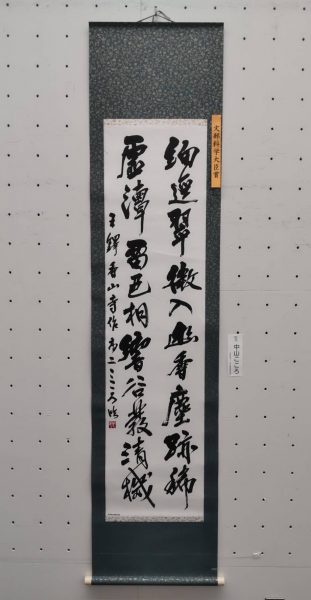 文部科学大臣賞
翠微入幽香塵跡稀
虛潭留色相響谷發清機
王鐸香山寺作
中山